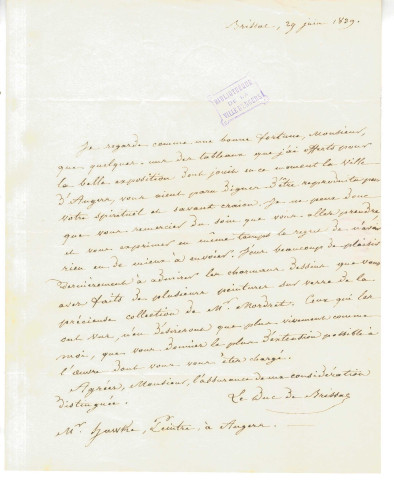 Brissac, 29 juin 1839.
BIBLIOTHEQUE
DE LA
VILLE
Je regarde comme une bonne fortune, Monsieur,
que quelques uns des tableaux que j'ai offerts pour
la belle exposition dont jouit en ce moment la Ville
d'Angers vous aient paru dignes d'être reproduits par
votre spirituel et savant craion. Je ne peux donc
que vous remercier du soin que vous allez prendre
et vous exprimer en même temps le regret de n'avoir
rien eu de mieux à envoier. J'eus beaucoup de plaisir
dernièrement à admirer les charmans dessins que vous
avez faits de plusieurs peintures sur verre de la
précieuse collection de Mr. Mordret. Ceux qui les
ont vus, n'en désirerons que plus vivement comme
moi, que vous donniez le plus d'extention possible à
l'œuvre dont vous vous êtes chargé.
Agréez, Monsieur, l'assurance de ma considération
distinguée.
Le Duc de Brissac
Mr. Hawke, Peintre à Angers.